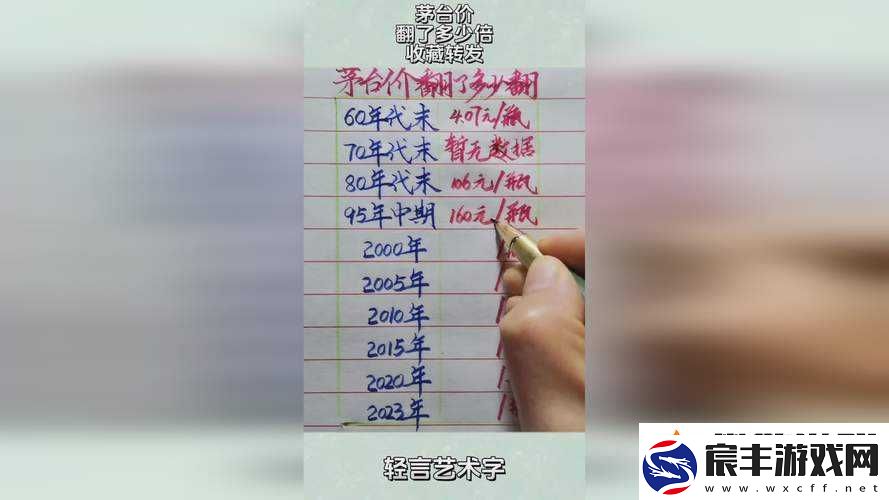 茅台价
翻了多少倍
收藏转发
茅台价翻了多少翻
60年代末 4.07元/瓶
70年代末 暂无数据
80年代末 106元/瓶
95年中期 160元/瓶
2000年
2005年
2010年
2015年
2020年
2023年
轻言艺术字
宸丰游戏网
www.wxcff.net